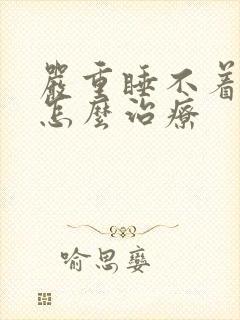 嚴重睡不着
怎麼治療
喻思孌